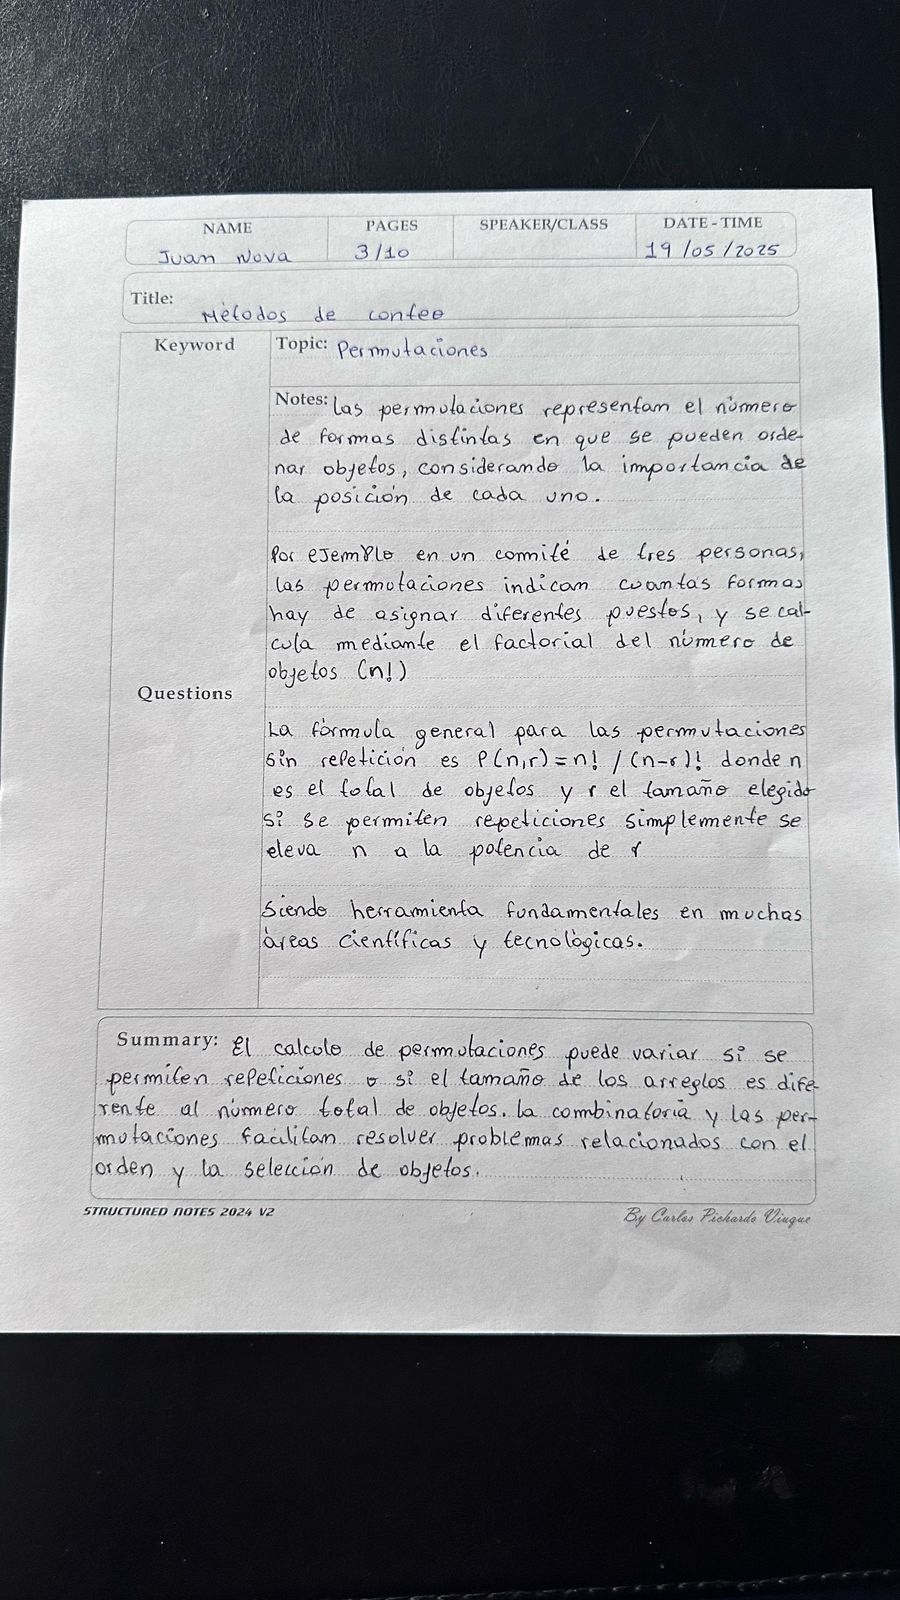 NAME PAGES SPEAKER/CLASS DATE-TIME
Juan Nova 3/10 19/05/2025
Title:
Métodos de conteo
Keyword
Topic: Permutaciones
Notes: Las permutaciones representan el número
de formas distintas en que se pueden orde-
nar objetos, considerando la importancia de
la posición de cada uno.
Por ejemplo en un comité de tres personas,
las permutaciones indican cuantas formas
hay de asignar diferentes puestos, y se cal-
cula mediante el factorial del número de
objetos (n!)
Questions
La fórmula general para las permutaciones
sin repetición es P(n,r)=n! /(n-r)! donde n
es el total de objetos y r el tamaño elegido
si se permiten repeticiones simplemente se
eleva n a la potencia de r
Siendo herramienta fundamentales en muchas
áreas científicas y tecnológicas.
Summary: El calculo de permutaciones puede variar si se
permiten repeticiones o si el tamaño de los arreglos es dife-
rente al número total de objetos. La combinatoria y las per-
mutaciones facilitan resolver problemas relacionados con el
orden y la selección de objetos.
STRUCTURED NOTES 2024 V2
By Carlos Pichardo Viuque